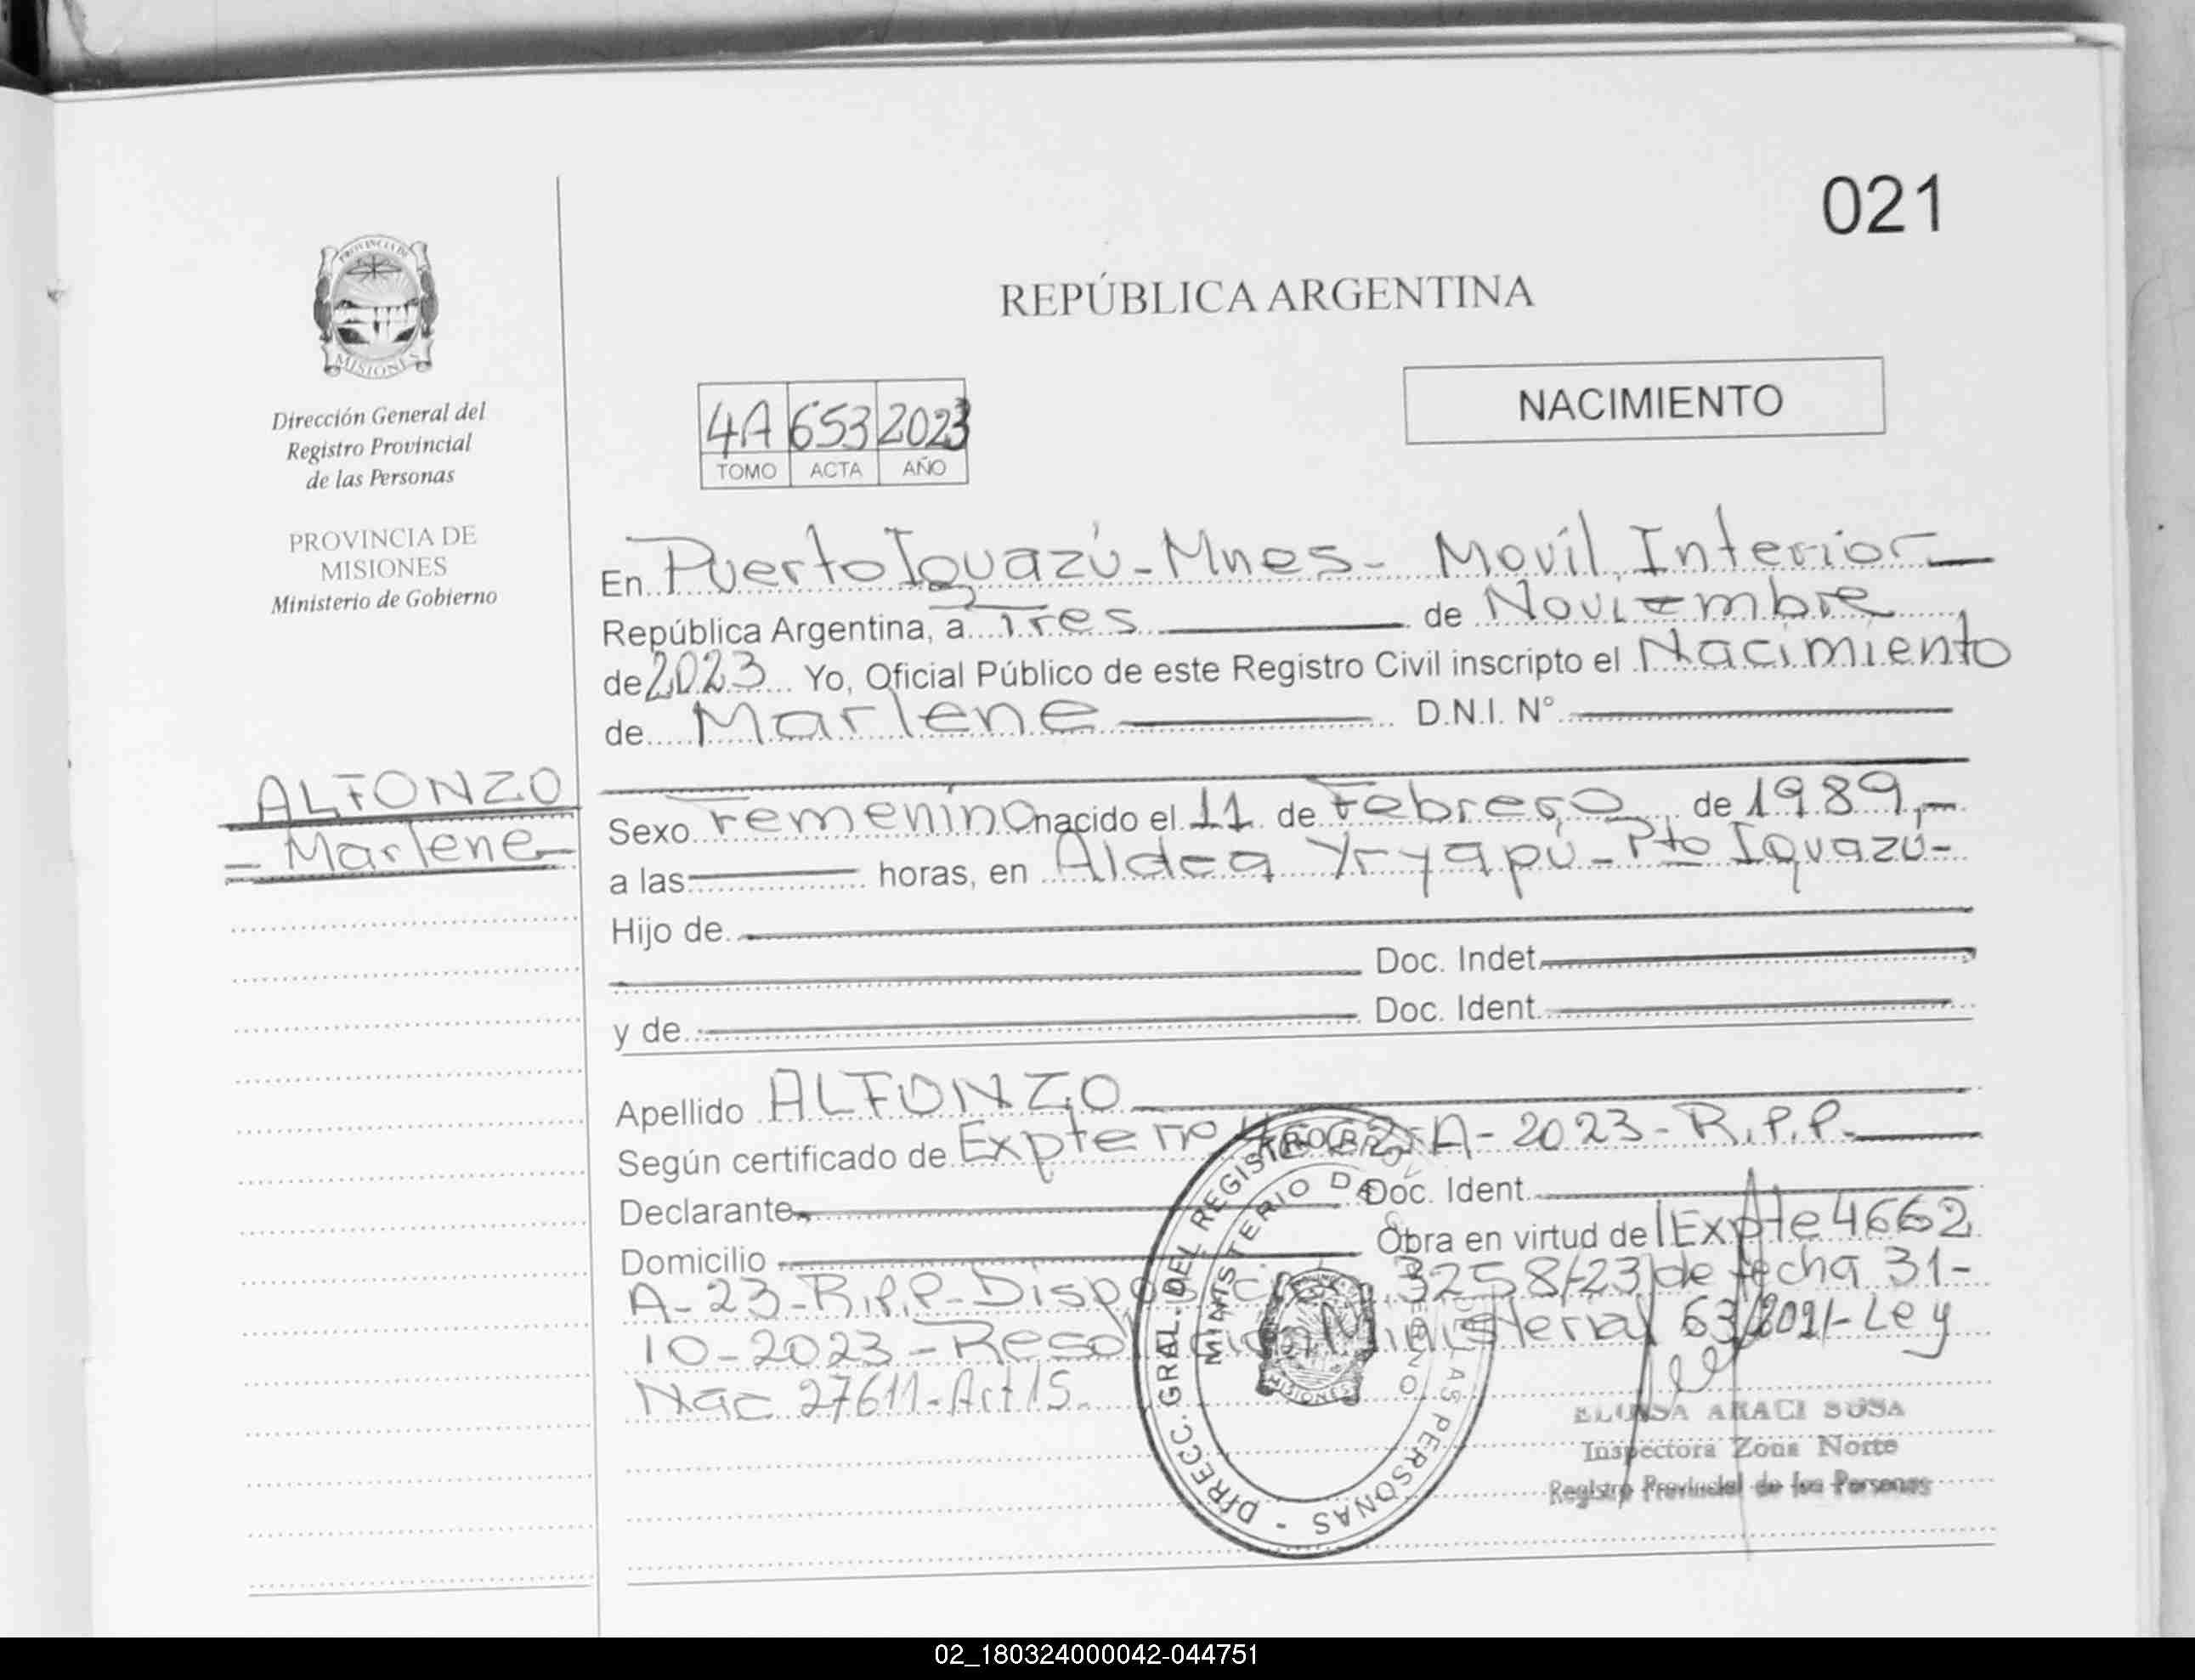 021
PROVINCIA DE
MISIONES
Dirección General del
Registro Provincial
de las Personas
PROVINCIA DE
MISIONES
Ministerio de Gobierno
ALFONZO
- Marlene -
REPÚBLICA ARGENTINA
NACIMIENTO
4A 653 2023
TOMO ACTA AÑO
En Puerto Iguazú - Mnes - Movil Interior
República Argentina, a Tres de Noviembre
de 2023 Yo, Oficial Público de este Registro Civil inscripto el Nacimiento
de Marlene D.N.I. N°
Sexo Femenino nacido el 11 de Febrero de 1989,-
a las horas, en Aldea Yryapú - Pto Iguazú-
Hijo de
Doc. Indet.
y de Doc. Ident.
Apellido ALFONZO
Según certificado de Expte no 4662-A-2023-R.P.P.
Declarante Doc. Ident.
Domicilio Obra en virtud de l Expte 4662
A-23-R.P.P-Disposición 3258/23 de fecha 31-
10-2023-Resolución Ministerial 63/2021-Ley
Nac 27611-Art 15.
DIRECC. GRAL. DEL REGISTRO PROV. DE LAS PERSONAS -
MINISTERIO DE GOBIERNO
MISIONES
ELUISA ARACI SOSA
Inspectora Zona Norte
Registro Provincial de las Personas
02_180324000042-044751